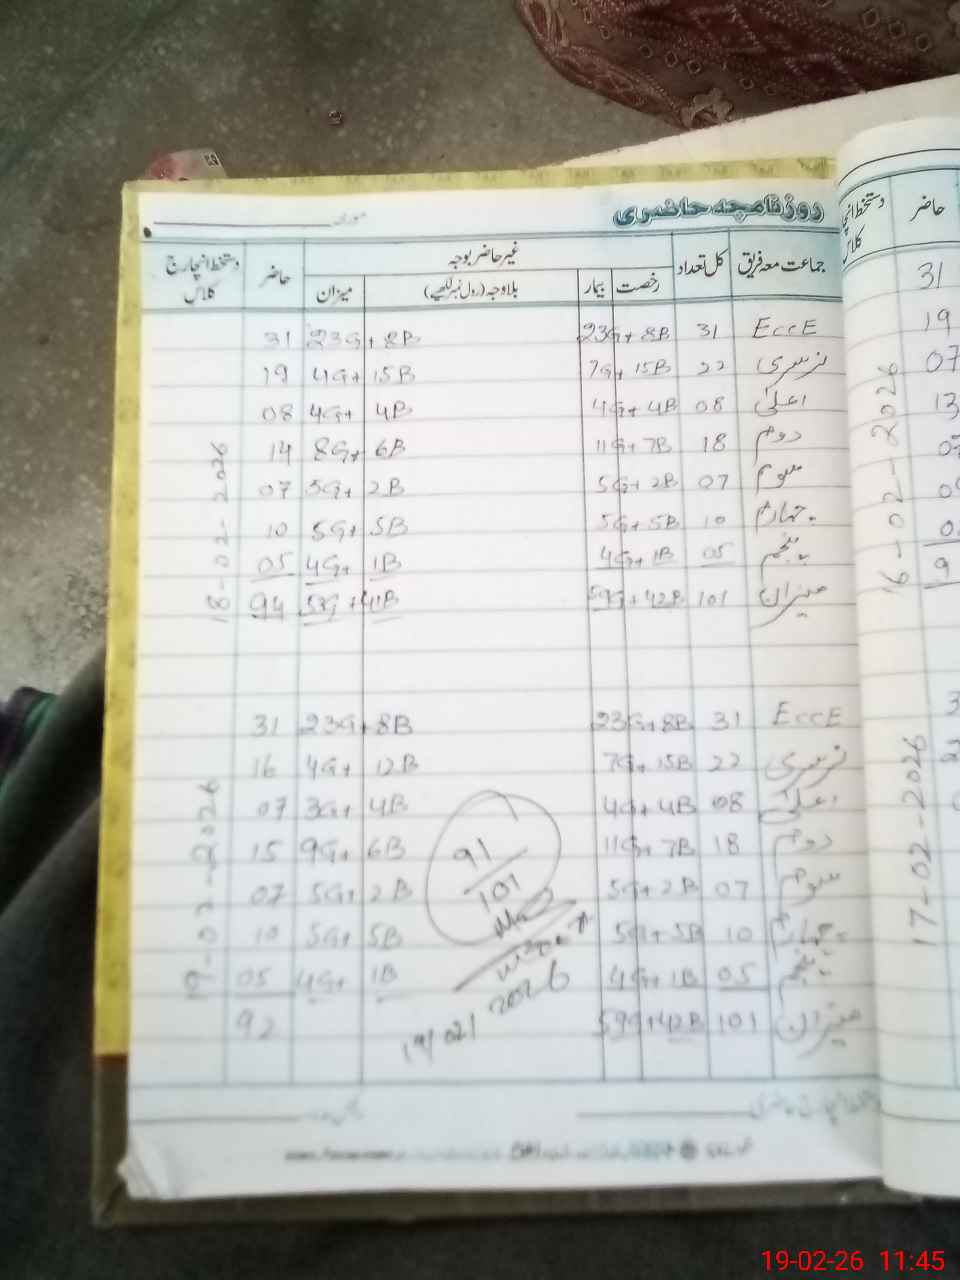 روزنامچہ حاضری
جماعت معہ فریق کل تعداد غیر حاضر بوجہ حاضر دستخط انچارج کلاس
رخصت بیمار بلاوجہ (رول نمبر لکھیے) میزان
EccE 31 23G+8B 23G+8B 31
نرسری 22 7G+15B 4G+15B 19
اعلیٰ 08 4G+4B 4G+4B 08
دوم 18 11G+7B 8G+6B 14
سوم 07 5G+2B 5G+2B 07
چہارم 10 5G+5B 5G+5B 10
پنجم 05 4G+1B 4G+1B 05
میزان 101 59G+42B 53G+41B 94
18-02-2026
EccE 31 23G+8B 23G+8B 31
نرسری 22 7G+15B 4G+12B 16
اعلیٰ 08 4G+4B 3G+4B 07
دوم 18 11G+7B 9G+6B 15
سوم 07 5G+2B 5G+2B 07
چہارم 10 5G+5B 5G+5B 10
پنجم 05 4G+1B 4G+1B 05
میزان 101 59G+42B 92
19-02-2026
91
101
19/02/
2026
حاضر دستخط انچارج
کلاس
31
19
07
13
16-02-2026
17-02-2026
19-02-26 11:45